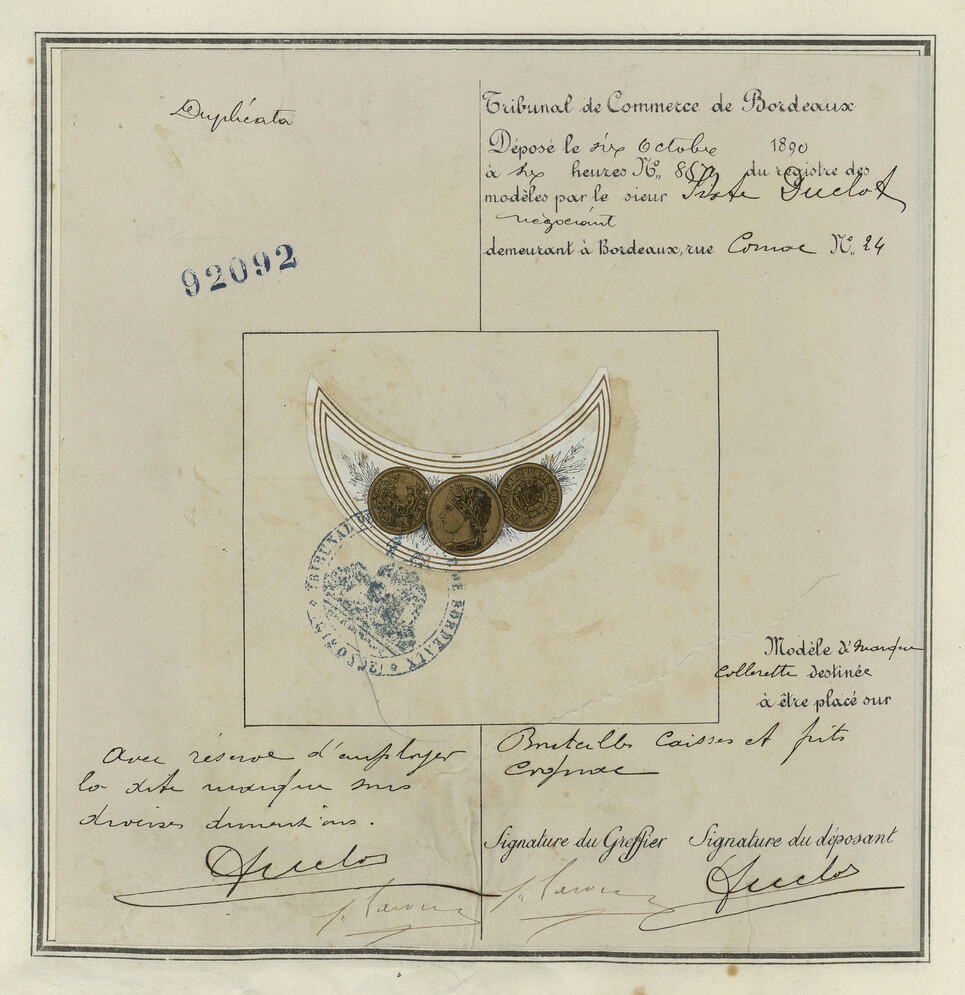 Duplicata
92092
Tribunal de Commerce de Bordeaux
Déposé le six Octobre 1890
à six heures No. du registre des
modèles par le sieur Duclot
négociant
demeurant à Bordeaux, rue No. 24
TRIBUNAL DE BORDEAUX
Modèle de marque
Collerette destinée
à être placé sur
Bouteilles Caisses et futs
Cognac
avec réserve d'employer
la dite marque sous
diverses dimentions.
Duclos
Signature du Greffier Signature du déposant
Duclos